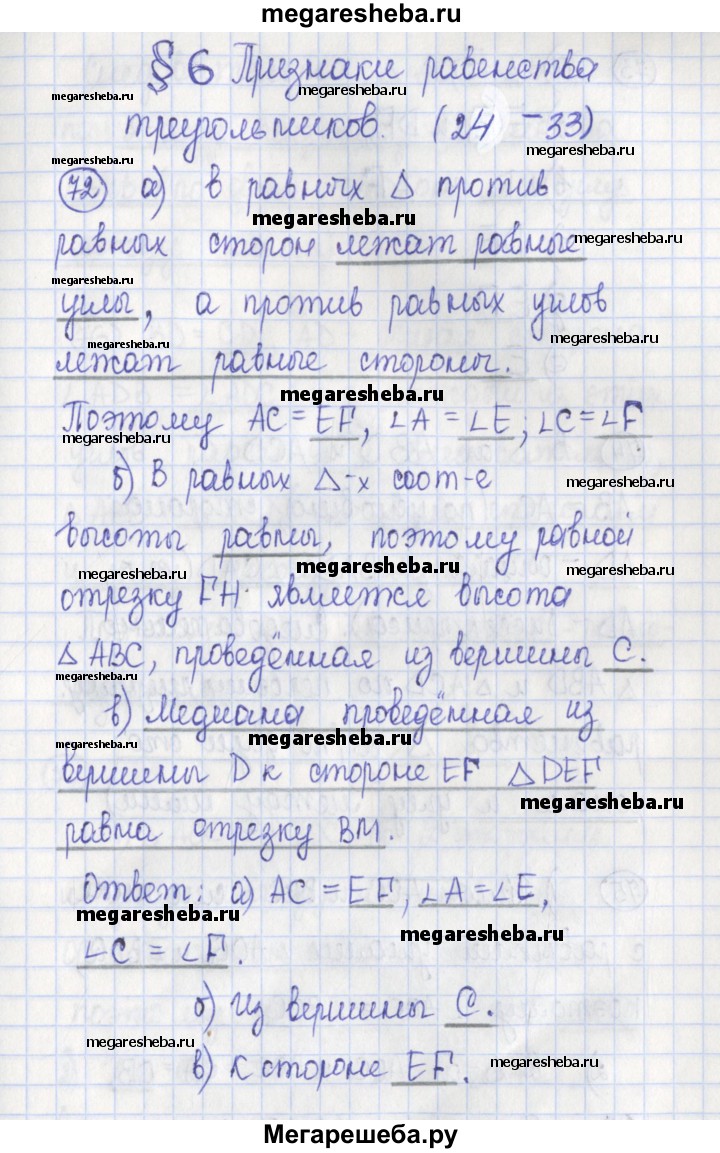 megaresheba.ru
§ 6 Признаки равенства
megaresheba.ru megaresheba.ru
треугольников. (24 – 33)
megaresheba.ru megaresheba.ru
72 а) в равных Δ против
megaresheba.ru
равных сторон лежат равные
megaresheba.ru
megaresheba.ru
углы, а против равных углов
megaresheba.ru megaresheba.ru
лежат равные стороны.
megaresheba.ru
Поэтому AC = EF, ∠A = ∠E; ∠C = ∠F
megaresheba.ru
б) В равных Δ-х соот-е
megaresheba.ru
высоты равны, поэтому равной
megaresheba.ru megaresheba.ru megaresheba.ru
отрезку FH является высота
Δ ABC, проведённая из вершины C.
megaresheba.ru
в) Медиана проведённая из
megaresheba.ru megaresheba.ru
вершины D к стороне EF Δ DEF
megaresheba.ru
равна отрезку BM.
megaresheba.ru
Ответ: а) AC = EF, ∠A = ∠E,
megaresheba.ru megaresheba.ru
∠C = ∠F.
б) Из вершины C.
megaresheba.ru
в) К стороне EF.
megaresheba.ru
megaresheba.ru
Мегарешеба.ру